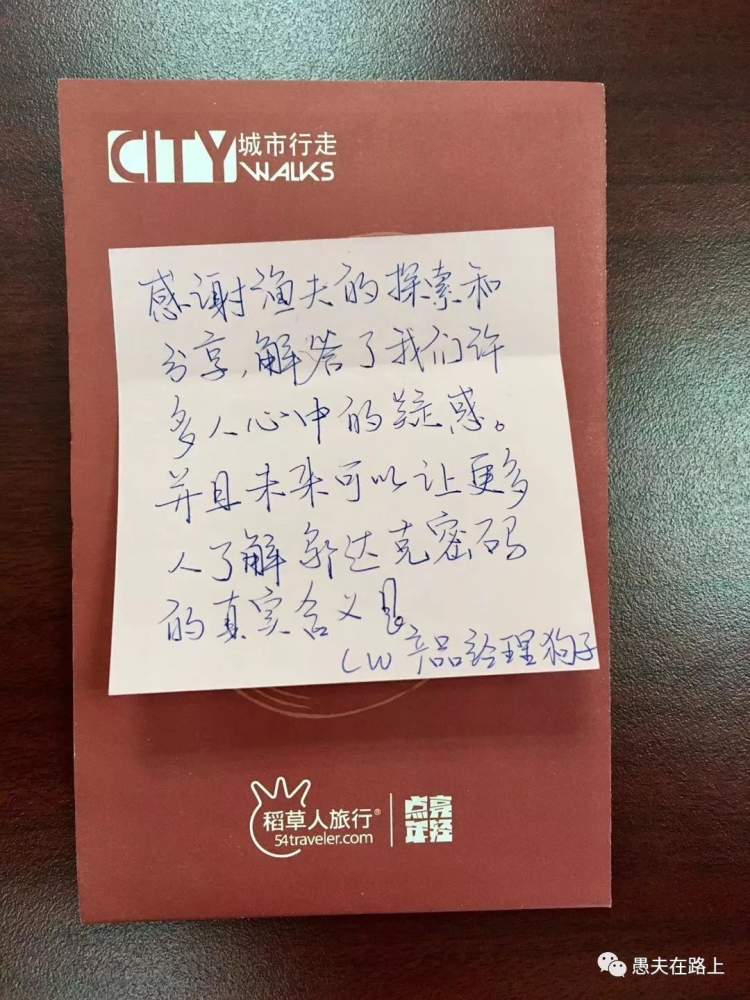 CITY 城市行走
WALKS
感谢渔夫的探索和
分享,解答了我们许
多人心中的疑惑。
并且未来可以让更多
人了解邬达克密码
的真实含义
CW 产品经理狗子
稻草人旅行®
54traveler.com
点亮
年轻
愚夫在路上